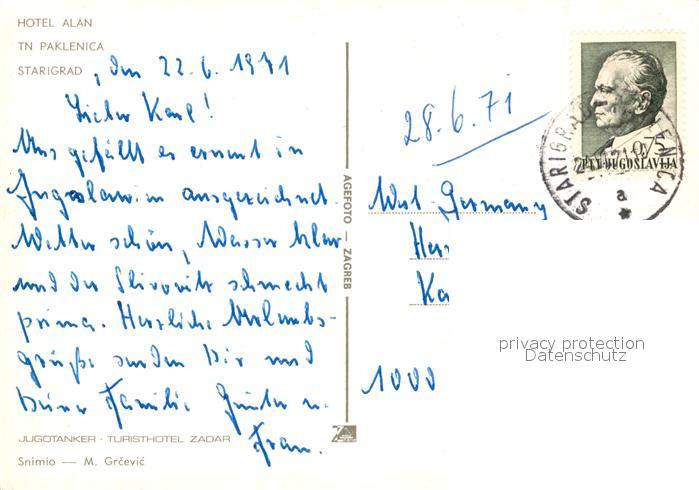 HOTEL ALAN
TN PAKLENICA
STARIGRAD, den 22.6.1971
Lieber Karl!
Uns gefällt es erneut in
Jugoslawien ausgezeichnet.
Wetter schön, Wasser klar
und der Slivovitz schmeckt
prima. Herzliche Urlaubs-
grüße senden Dir und
Deiner Familie Günter u.
Frau.
JUGOTANKER · TURISTHOTEL ZADAR
Snimio — M. Grčević
AGEFOTO — ZAGREB
0,
PTT JUGOSLAVIJA
STARIGRAD
a
28.6.71
West-Germany
Her
Ka
1000
privacy protection
Datenschutz